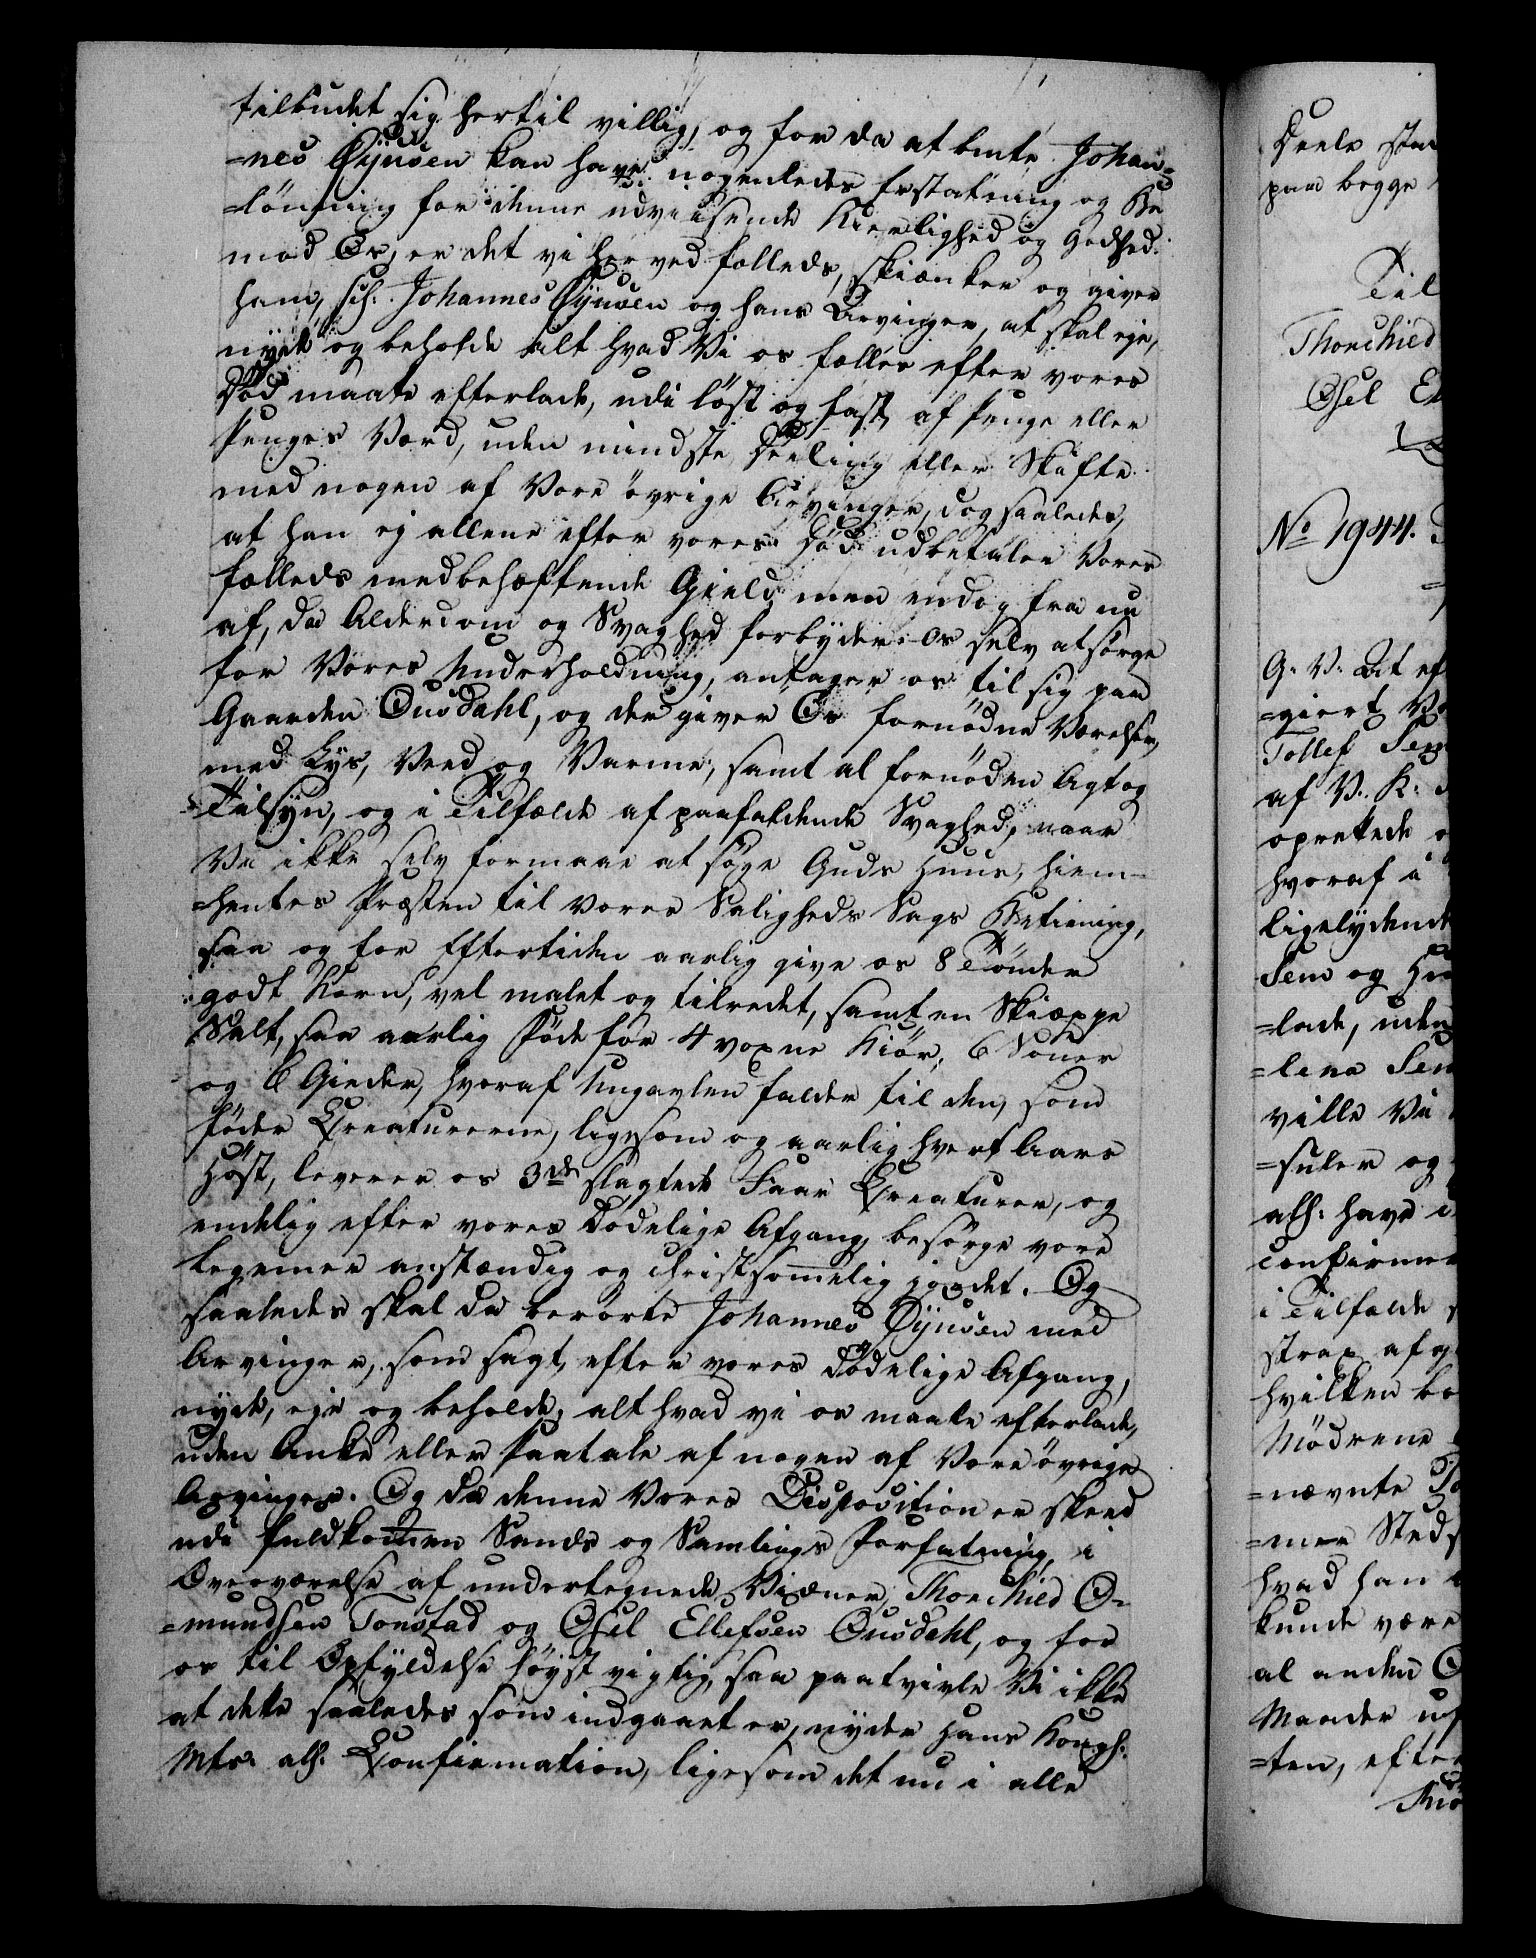 tilbudet sig hertil villig, og for da at bemte Johan-
=nes Øÿusen kan have nogenledes Erstatning og Be
=lönning for denne udviisende Kierlighed og Godhed
mod Os, er det vi herved fælleds, skiænker og giver
ham, sch: Johannes Øÿusen og hans Arvinger, at skal eje,
nyde og beholde alt hvad Vi os fælles efter vores
Död maate efterlade, udi löst og fast, af Penge eller
Penges Værd, uden mindste Deeling eller Skifte
med nogen af Vore övrige Arvinger, dog saaledes,
at han ej allene efter vores Död udbetaler Vores
fælleds medbehæftende Gield, men endog fra nu
af, da Alderdom og Svaghed forbyder Os selv at sörge
for Vores Underholdning, antager os til sig paa
Gaarden Ousdahl, og der giver Os fornödne Værelser,
med Lys, Veed og Varme, samt al fornöden Agt og
Tilsÿn, og i Tilfælde af paafaldende Svaghed, naar
Vi ikke selv formaae at söge Guds Huus, hiem-
=hentes Præsten til Vores Saligheds Sags Betiening,
saa og for Eftertiden aarlig give os 8 Tönder
godt Korn, vel malet og tilredt, samt en Skiæppe
Salt, saa aarlig föde for 4 voxne Kiör, 6 Souer
og 6 Gieder, hvoraf Ungavlen falder til den, som
föder Creaturerne, ligesom og aarlig hvert Aars
Höst, leverer os 3de slagtede Faar Creaturer, og
endelig efter vores Dödelige Afgang, besörge vore
Legemer anstændig og christsommelig jordet. Og
saaledes skal da berörte Johannes Øÿusen med
Arvinger, som sagt, efter vores dödelige Afgang,
nyde, eje og beholde, alt hvad vi os maate efterlade,
uden Anke eller Paatale af nogen af Vore övrige
Arvinger. Og da denne Vores Disposition er skeed
udi fuldkommen Sands og Samlings Forfatning, i
Overværelse af undertegnede Vidner, Thorchied O-
=mundsen Tonstad og Osel Ellefsen Ousdahl, og for
os til Opfÿldelse höyst vigtig, saa paatvivle Vi ikke
at dette saaledes som indgaaet er, nyder Hans Kongl:
Mts: all: Confirmation, ligesom det nu i alle

Deele sta
paa begge
Til
Thorchied
Osel El
No 1944.
G. V. At ef
=giert V
Tollef Sem
af V. K.
oprettede
hvoraf i
ligelydende
Sem og
=lade, uden
=lena Sem
ville Vi
=suler og
all: have
confirmer
i Tilfælde
strax afg
hvilken bo
Mödrene
=nævnte To
=mer Steds
hvad han
kunde være
al anden
Maader
=ten, efter